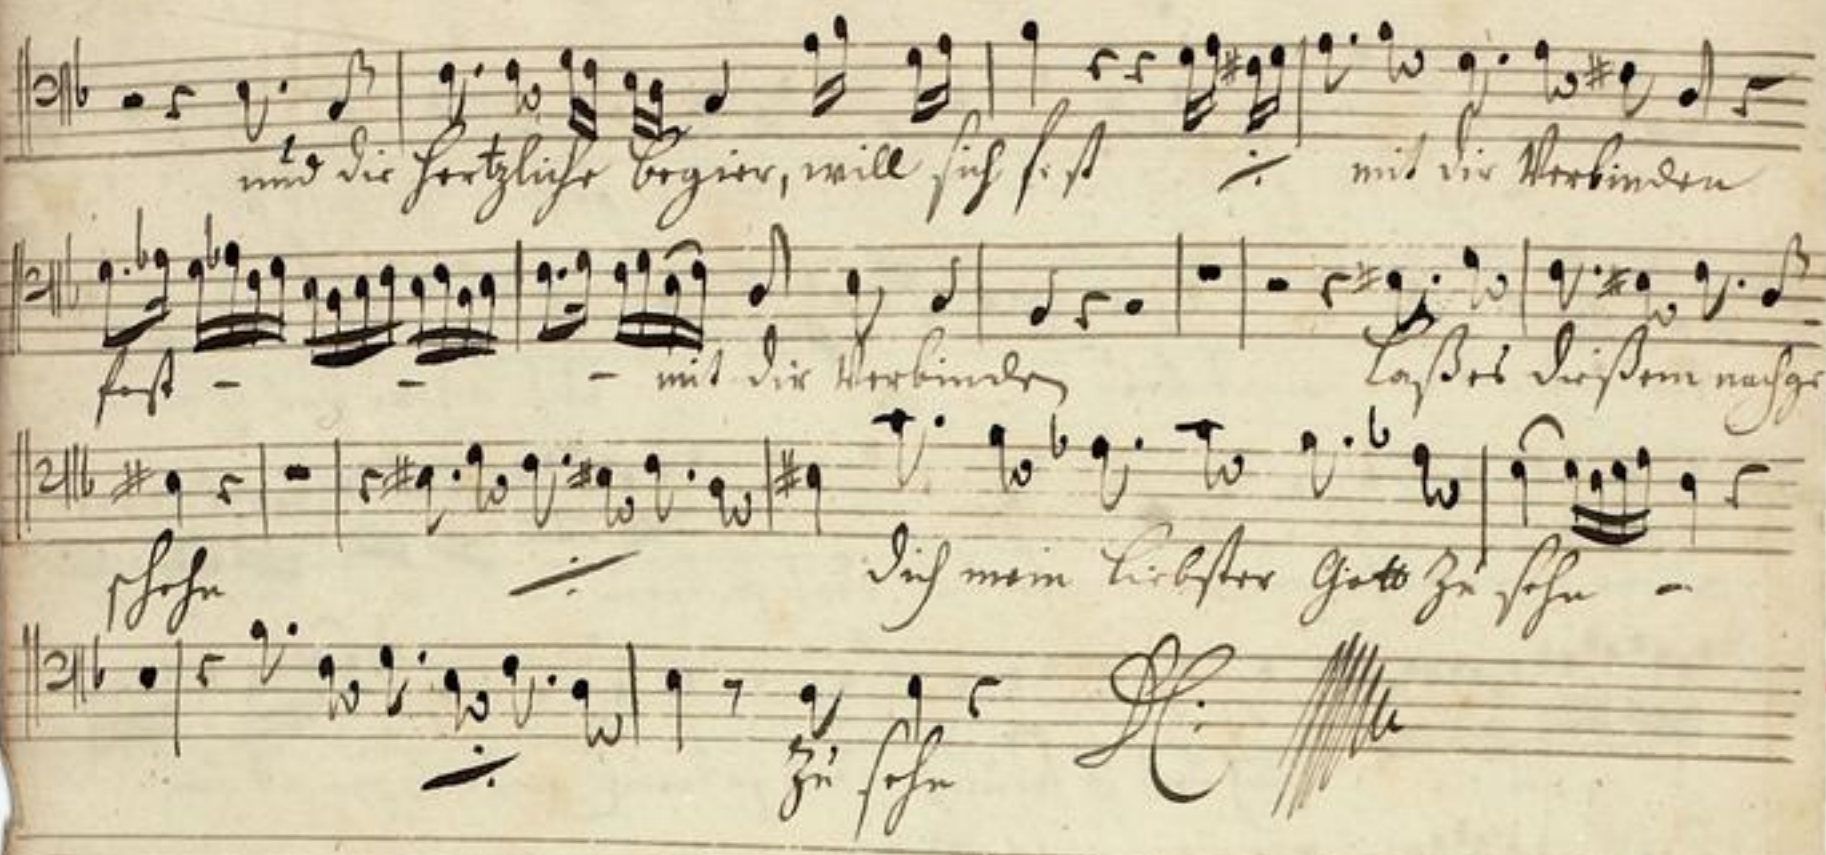 und die hertzliche begier, will sich fest ·/. mit dir Verbinden
fest - - - mit dir Verbinden Laß es dießem nachge
schehn ·/. dich mein liebster Gott zu sehn -
·/. zu sehn DC.